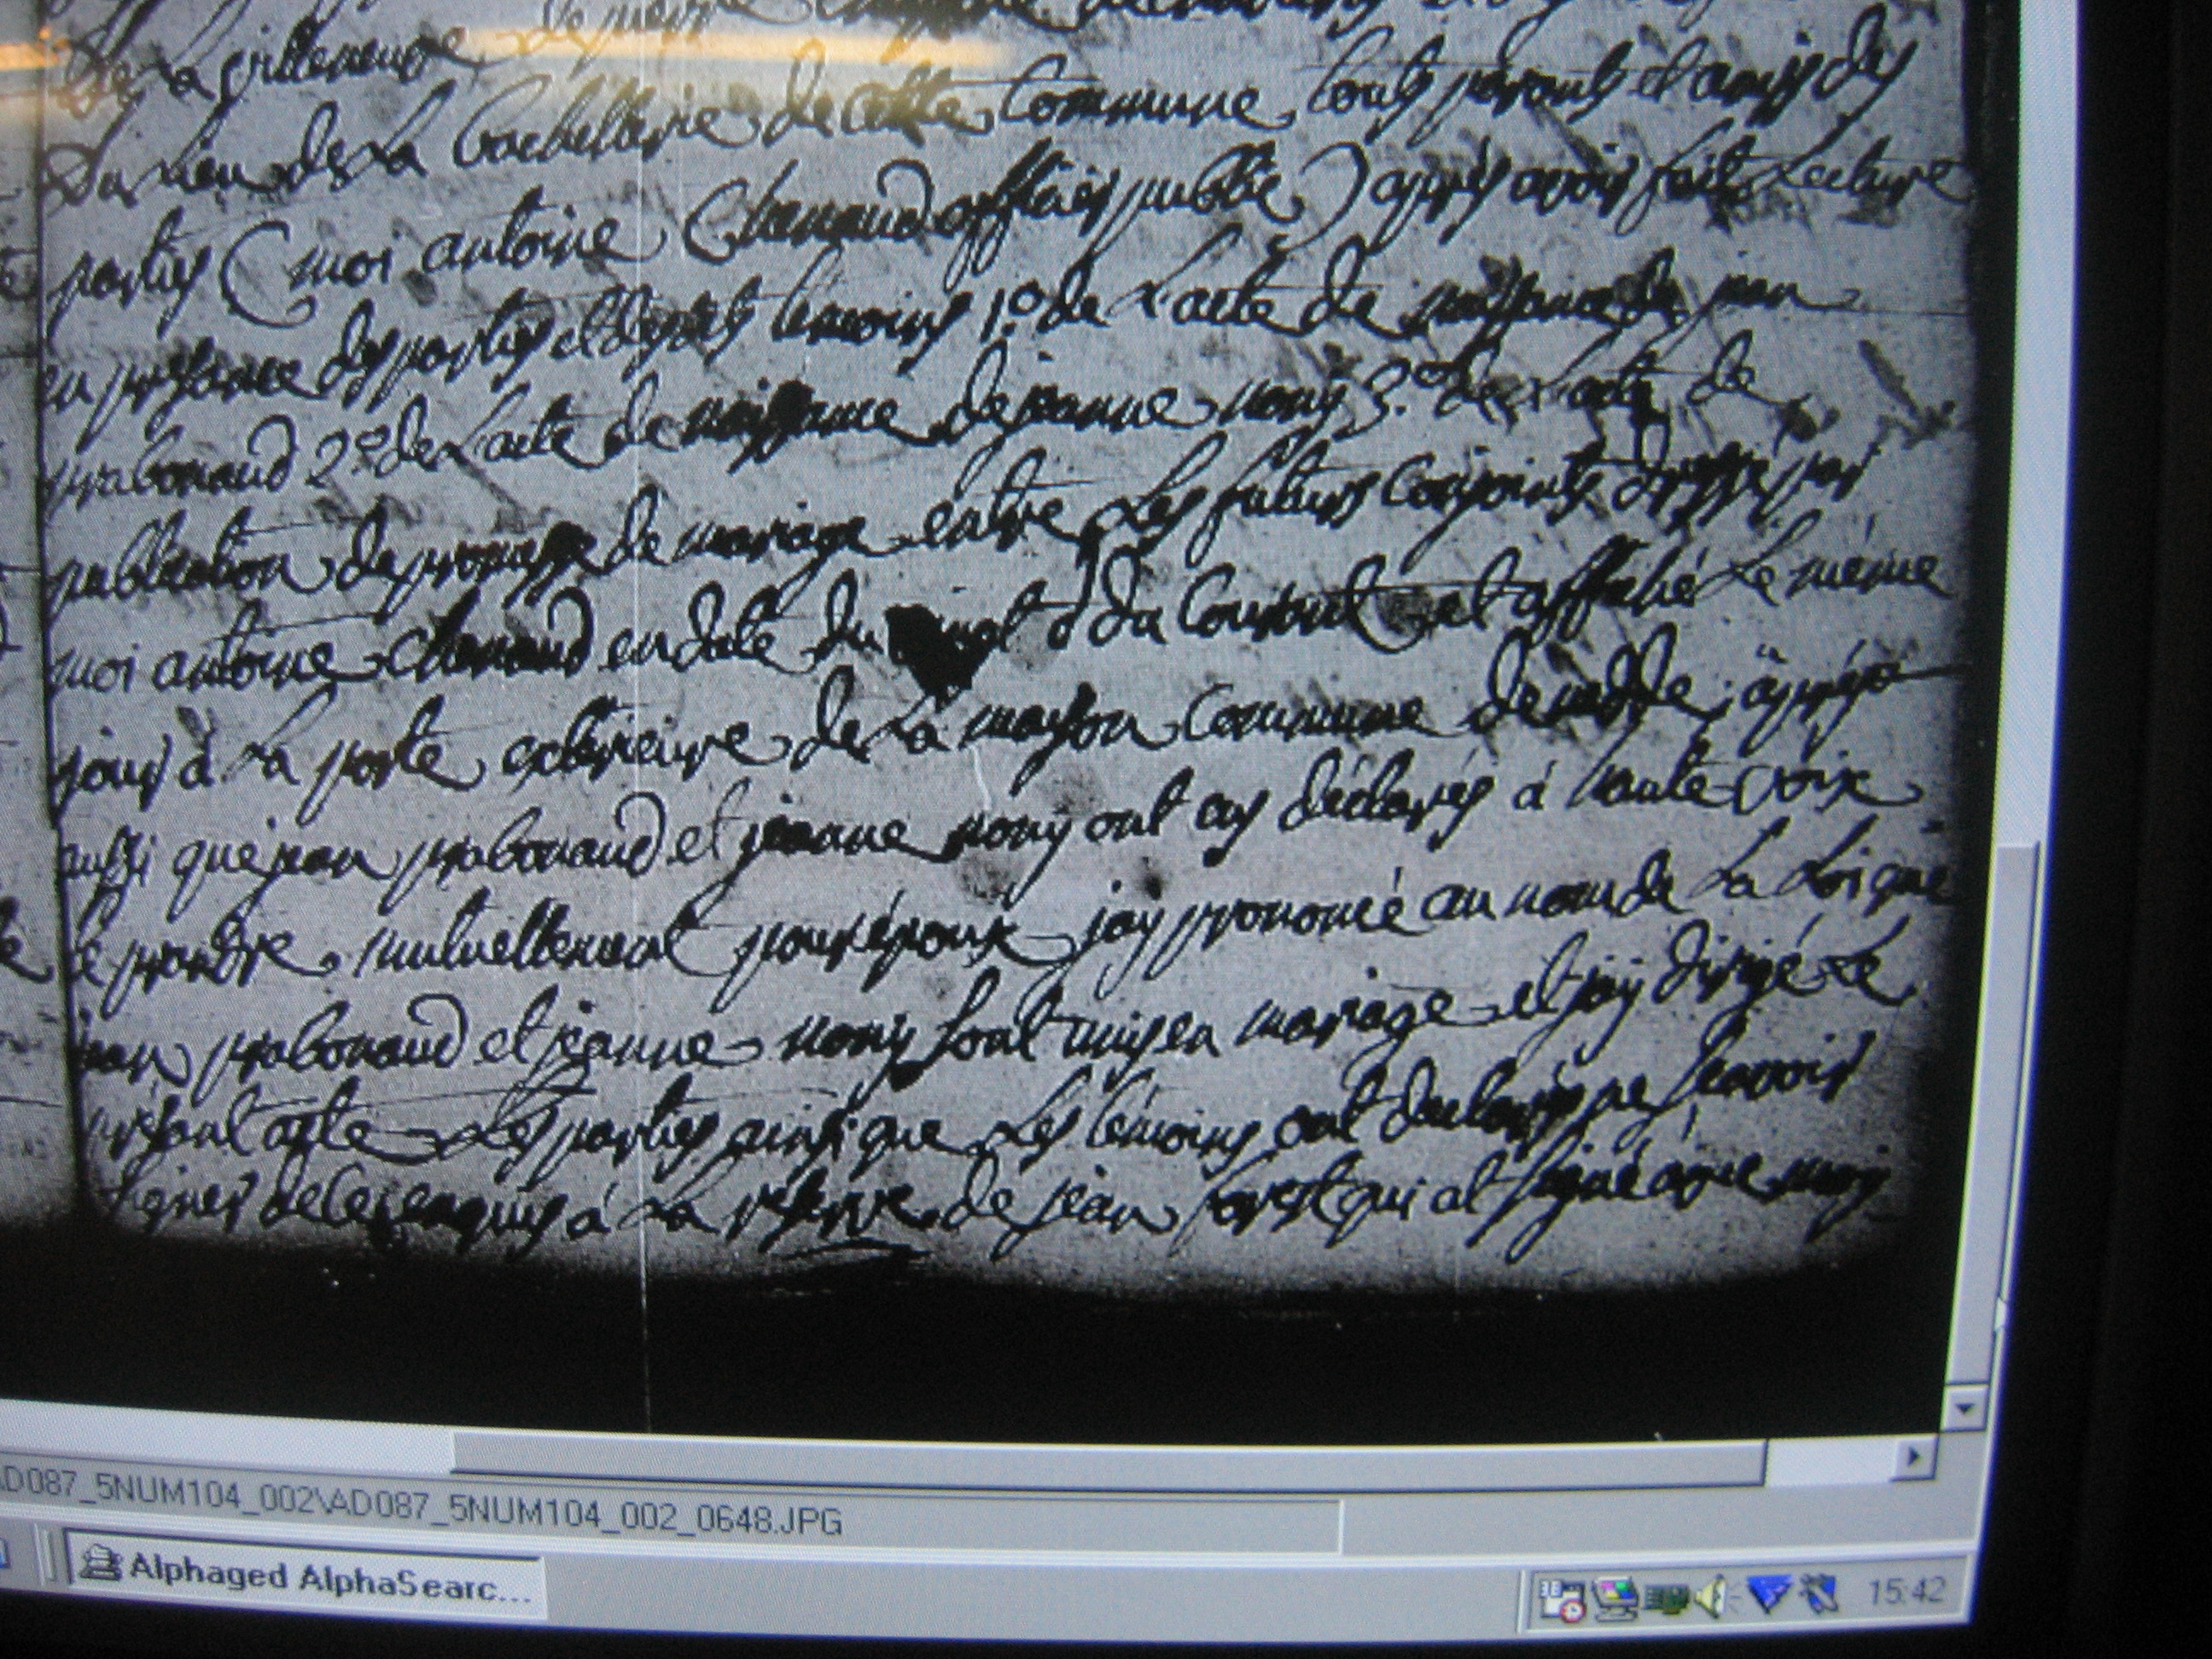 de la villeneuve
Du lieu de La bachellerie de cette Commune touts parents et amis des
parties (moi antoine Chanaud officier public) après avoir fait Lecture
en présance des parties et desdits témoins 1.º de L'acte de naissance de jean
prabonaud 2.º de L'acte de naissance de jeanne nony 3.º de L'acte de
publication de promesse de mariage entre Les futurs Conjoints dressé par
moi antoine chanaud en date du du Courant et affiché Le même
jour à La porte extérieure de La maison Commune de nedde ; après
aussi que jean prabonaud et jeanne nony ont eu déclarés à haute voix
se prendre mutuellement pour époux jay prononcé au nom de La Loi que
jean prabonaud et jeanne nony sont unis en mariage et jay dirigé Le
présent acte Les parties ainsi que Les témoins ont declarés ne scavoir
signer de ce enquis à La réserve de jean forest qui at signé avec moi
AD087_5NUM104_002\AD087_5NUM104_002_0648.JPG
Alphaged AlphaSearc...
15:42